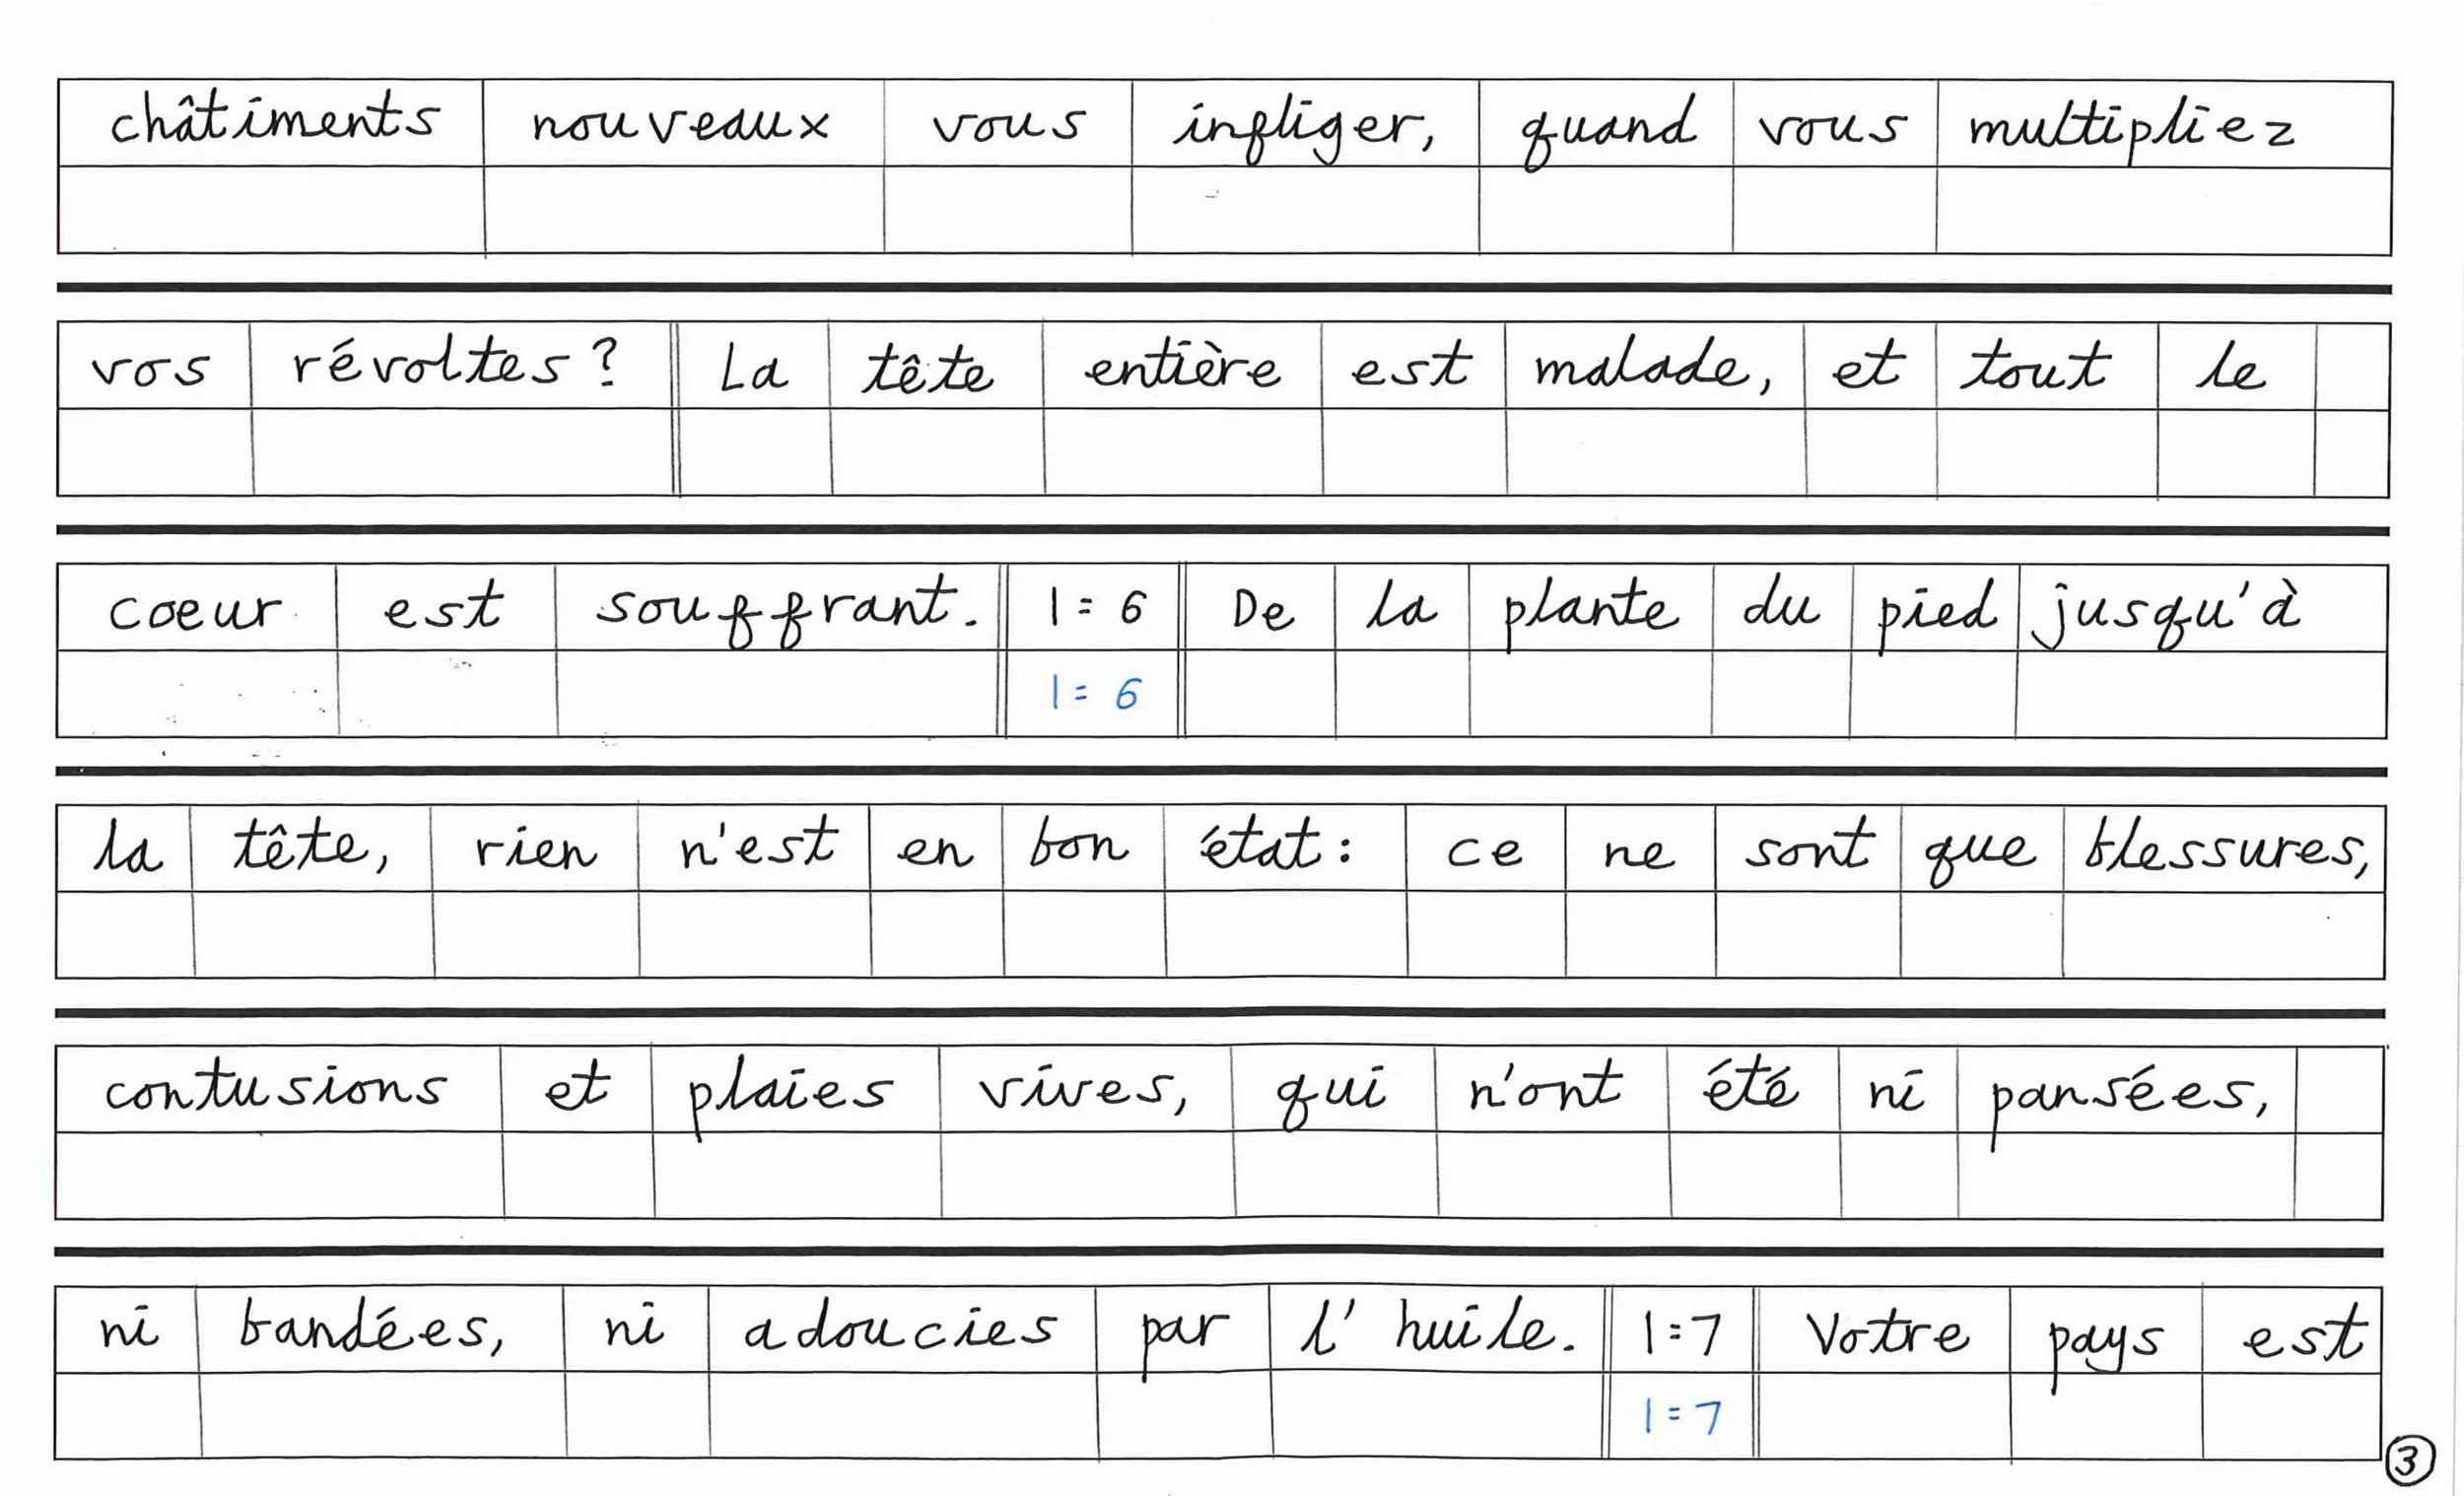 châtiments nouveaux vous infliger, quand vous multipliez
vos révoltes? La tête entière est malade, et tout le
coeur est souffrant. 1:6 De la plante du pied jusqu'à
1:6
la tête, rien n'est en bon état: ce ne sont que blessures,
contusions et plaies vives, qui n'ont été ni pansées,
ni bandées, ni adoucies par l'huile. 1:7 Votre pays est
1:7
3